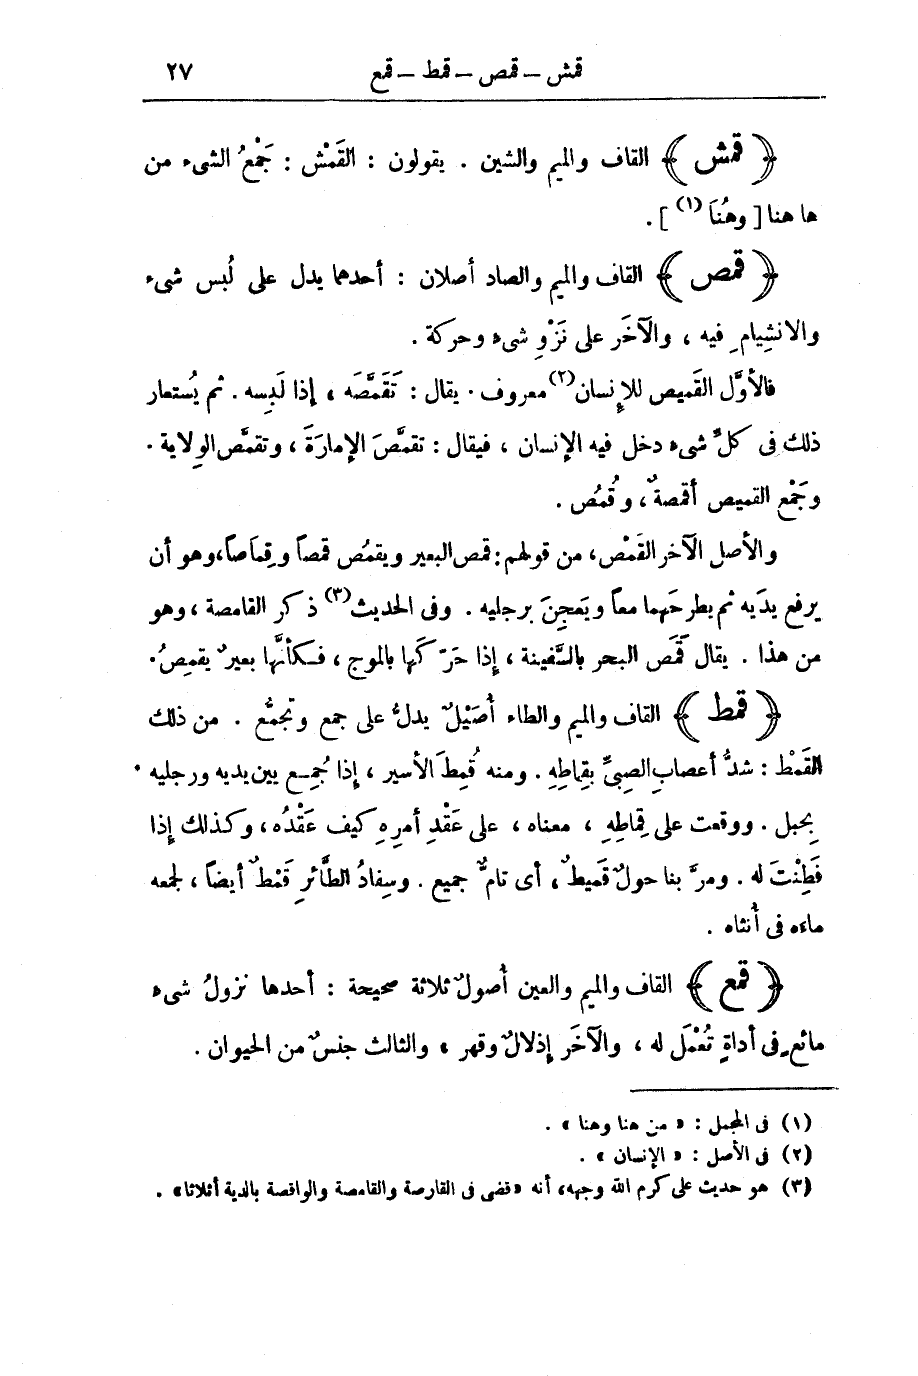 قمش – قمص – قمط – قمع ٢٧
﴿ قمش ﴾ القاف والميم والشين . يقولون : القَمْش : جَمْعُ الشىء من
ها هنا [ وهُنَا (١) ] .
﴿ قمص ﴾ القاف والميم والصاد أصلان : أحدهما يدل على لُبس شىء
والانشِيامِ فيه ، والآخَر على نَزْوِ شىء وحركة .
فالأوَّل القَميص للإنسان (٢) معروف . يقال : تَقَمَّصَه ، إذا لَبِسه . ثم يُستعار
ذلك فى كلِّ شىء دخل فيه الإنسان ، فيقال : تقمَّصَ الإمارَةَ ، وتقمَّص الوِلاية .
وجَمْع القميص أقمصةٌ ، وقُمُص .
والأصل الآخر القَمْص ، من قولهم : قمص البعير ويقمُص قمصاً وقِماصاً ، وهو أن
يرفع يدَيه ثم يطرحَهما معاً ويَعجِنَ برجليه . وفى الحديث (٣) ذكر القامصة ، وهو
من هذا . يقال قَمَص البحر بالسَّفينة ، إذا حَرّكَها بالموج ، فكأنَّها بعيرٌ يقمِصُ .
﴿ قمط ﴾ القاف والميم والطاء أُصَيْلٌ يدلُّ على جمع وتجمُّع . من ذلك
القَمْط : شدُّ أعصابِ الصبىِّ بقِماطِهِ . ومنه قُمِطَ الأسير ، إذا جُمِع بين يديه ورجليه
بِحبل . ووقعت على قِماطِهِ ، معناه ، على عَقْدِ أمرِهِ كيف عَقْدُه ، وكذلك إذا
فَطِنْتَ له . ومرَّ بنا حولٌ قَميطٌ ، أى تامٌّ جميع . وسِفادُ الطَّائرِ قَمْطٌ أيضاً ، لجمعه
ماءه فى أُنثاه .
﴿ قمع ﴾ القاف والميم والعين أُصولٌ ثلاثة صحيحة : أحدها نزولُ شىء
مائعٍ فى أداةٍ تُعْمَل له ، والآخَر إذلالٌ وقهر ، والثالث جنسٌ من الحيوان .
(١) فى المجمل : « من هنا وهنا » .
(٢) فى الأصل : « الإنسان » .
(٣) هو حديث على كرم الله وجهه، أنه « قضى فى القارصة والقامصة والواقصة بالدية أثلاثا » .